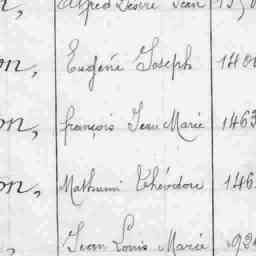 Alfred Désiré Jean
on, Eugène Joseph
on, françois Jean Marie 1463
on, Mathurin Théodore 146
Jean Louis Marie 924